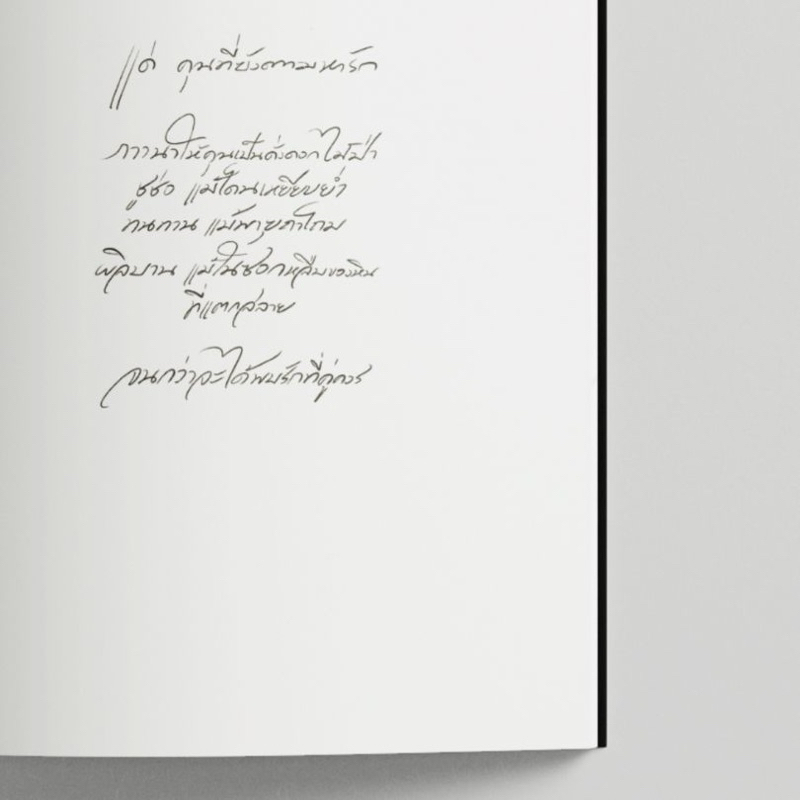 แด่ คุณที่ยังตามหารัก
ภาวนาให้คุณเป็นดั่งดอกไม้ป่า
ชูช่อ แม้โดนเหยียบย่ำ
ทนทาน แม้พายุถาโถม
ผลิบาน แม้ในซอกหลืบของหิน
ที่แตกสลาย
จนกว่าจะได้พบรักที่คู่ควร